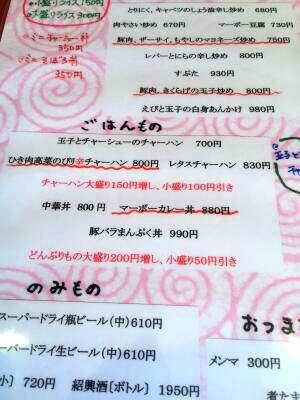 小盛りライス150円
大盛ライス300円
ミニチャーシュー丼
350円
ミニそぼろ丼
350円
とりにく、キャベツのしょう油辛し炒め 680円
肉やさい炒め 670円 マーボー豆腐 730円
豚肉、ザーサイ、もやしのマヨネーズ炒め 750円
レバーとにらの辛し炒め 800円
すぶた 930円
豚肉、きくらげの玉子炒め 800円
えびと玉子の白身あんかけ 980円
ごはんもの
玉子とチャーシューのチャーハン 700円
ひき肉高菜のぴり辛チャーハン 800円 レタスチャーハン 830円
チャーハン大盛り150円増し、小盛り100円引き
中華丼 800円 マーボーカレー丼 880円
豚バラまんぷく丼 990円
どんぶりもの大盛り200円増し、小盛り50円引き
のみもの
スーパードライ瓶ビール(中)610円
ーパードライ生ビール(中)610円
小〕720円 紹興酒〔ボトル〕1950円
おつま
メンマ 300円
煮たま